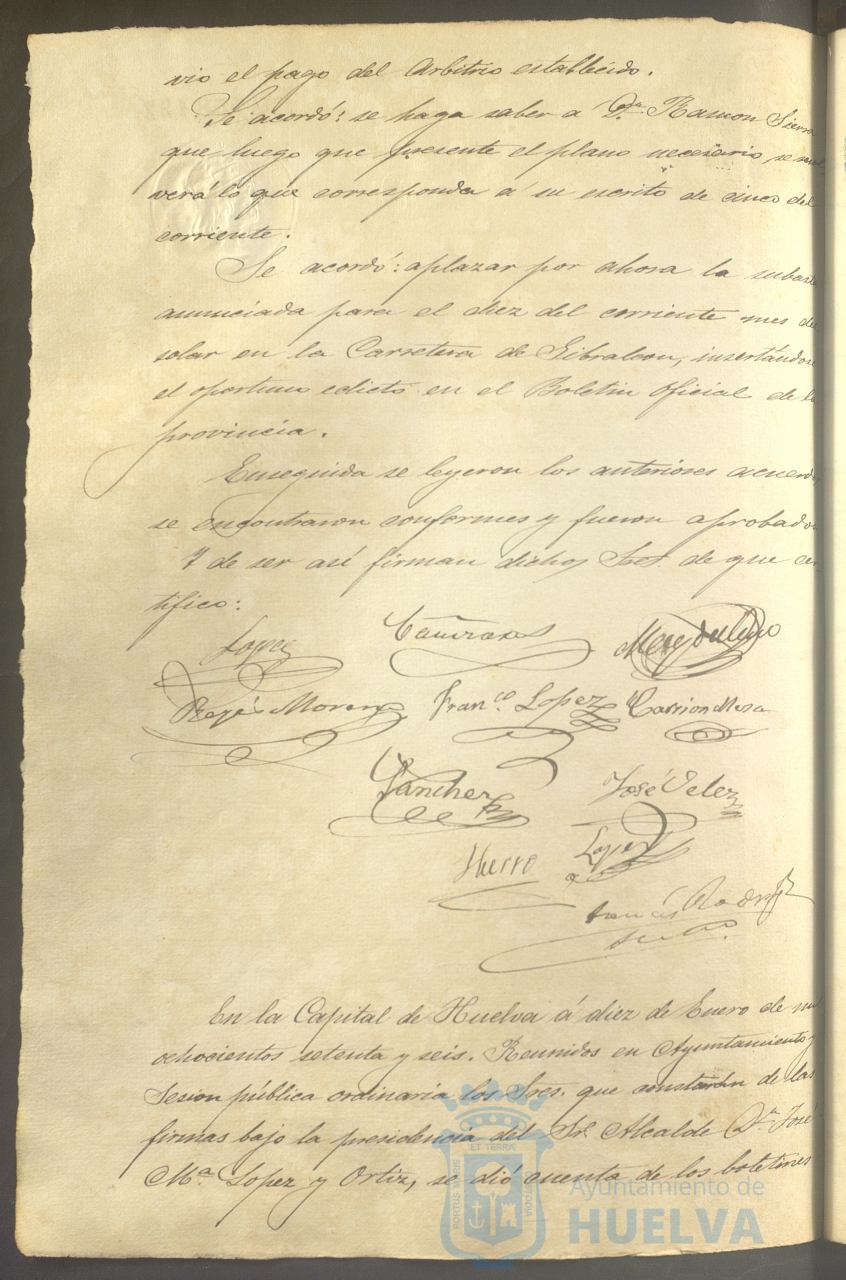 vio el pago del Arbitrio establecido.
Se acordó: se haga saber a Dn. Ramon Sierra
que luego que presente el plano necesario, se resol
verá lo que corresponda á su escrito de cinco del
corriente.
Se acordó: aplazar por ahora la subasta
anunciada para el diez del corriente mes de
solar en la Carretera de Gibraleon, insertándose
el oportuno edicto en el Boletin Oficial de la
provincia.
Enseguida se leyeron los anteriores acuerdos
se encontraron conformes y fueron aprobados
Y de ser así firman dichos Sres. de que cer
tifico:
Lopez
Reyes Moreno Franco. Lopez Carrion Mesa
Sanchez José Velez
Hierro Lopez
En la Capital de Huelva á diez de Enero de mil
ochocientos setenta y seis. Reunidos en Ayuntamiento y
Sesion pública ordinaria los Sres. que constarán de las
firmas bajo la presidencia del Sr. Alcalde Dn. José
Ma. Lopez y Ortiz, se dió cuenta de los boletines
ET TERRÆ
PORTUS MARIS
CUSTODIA
Ayuntamiento de
HUELVA